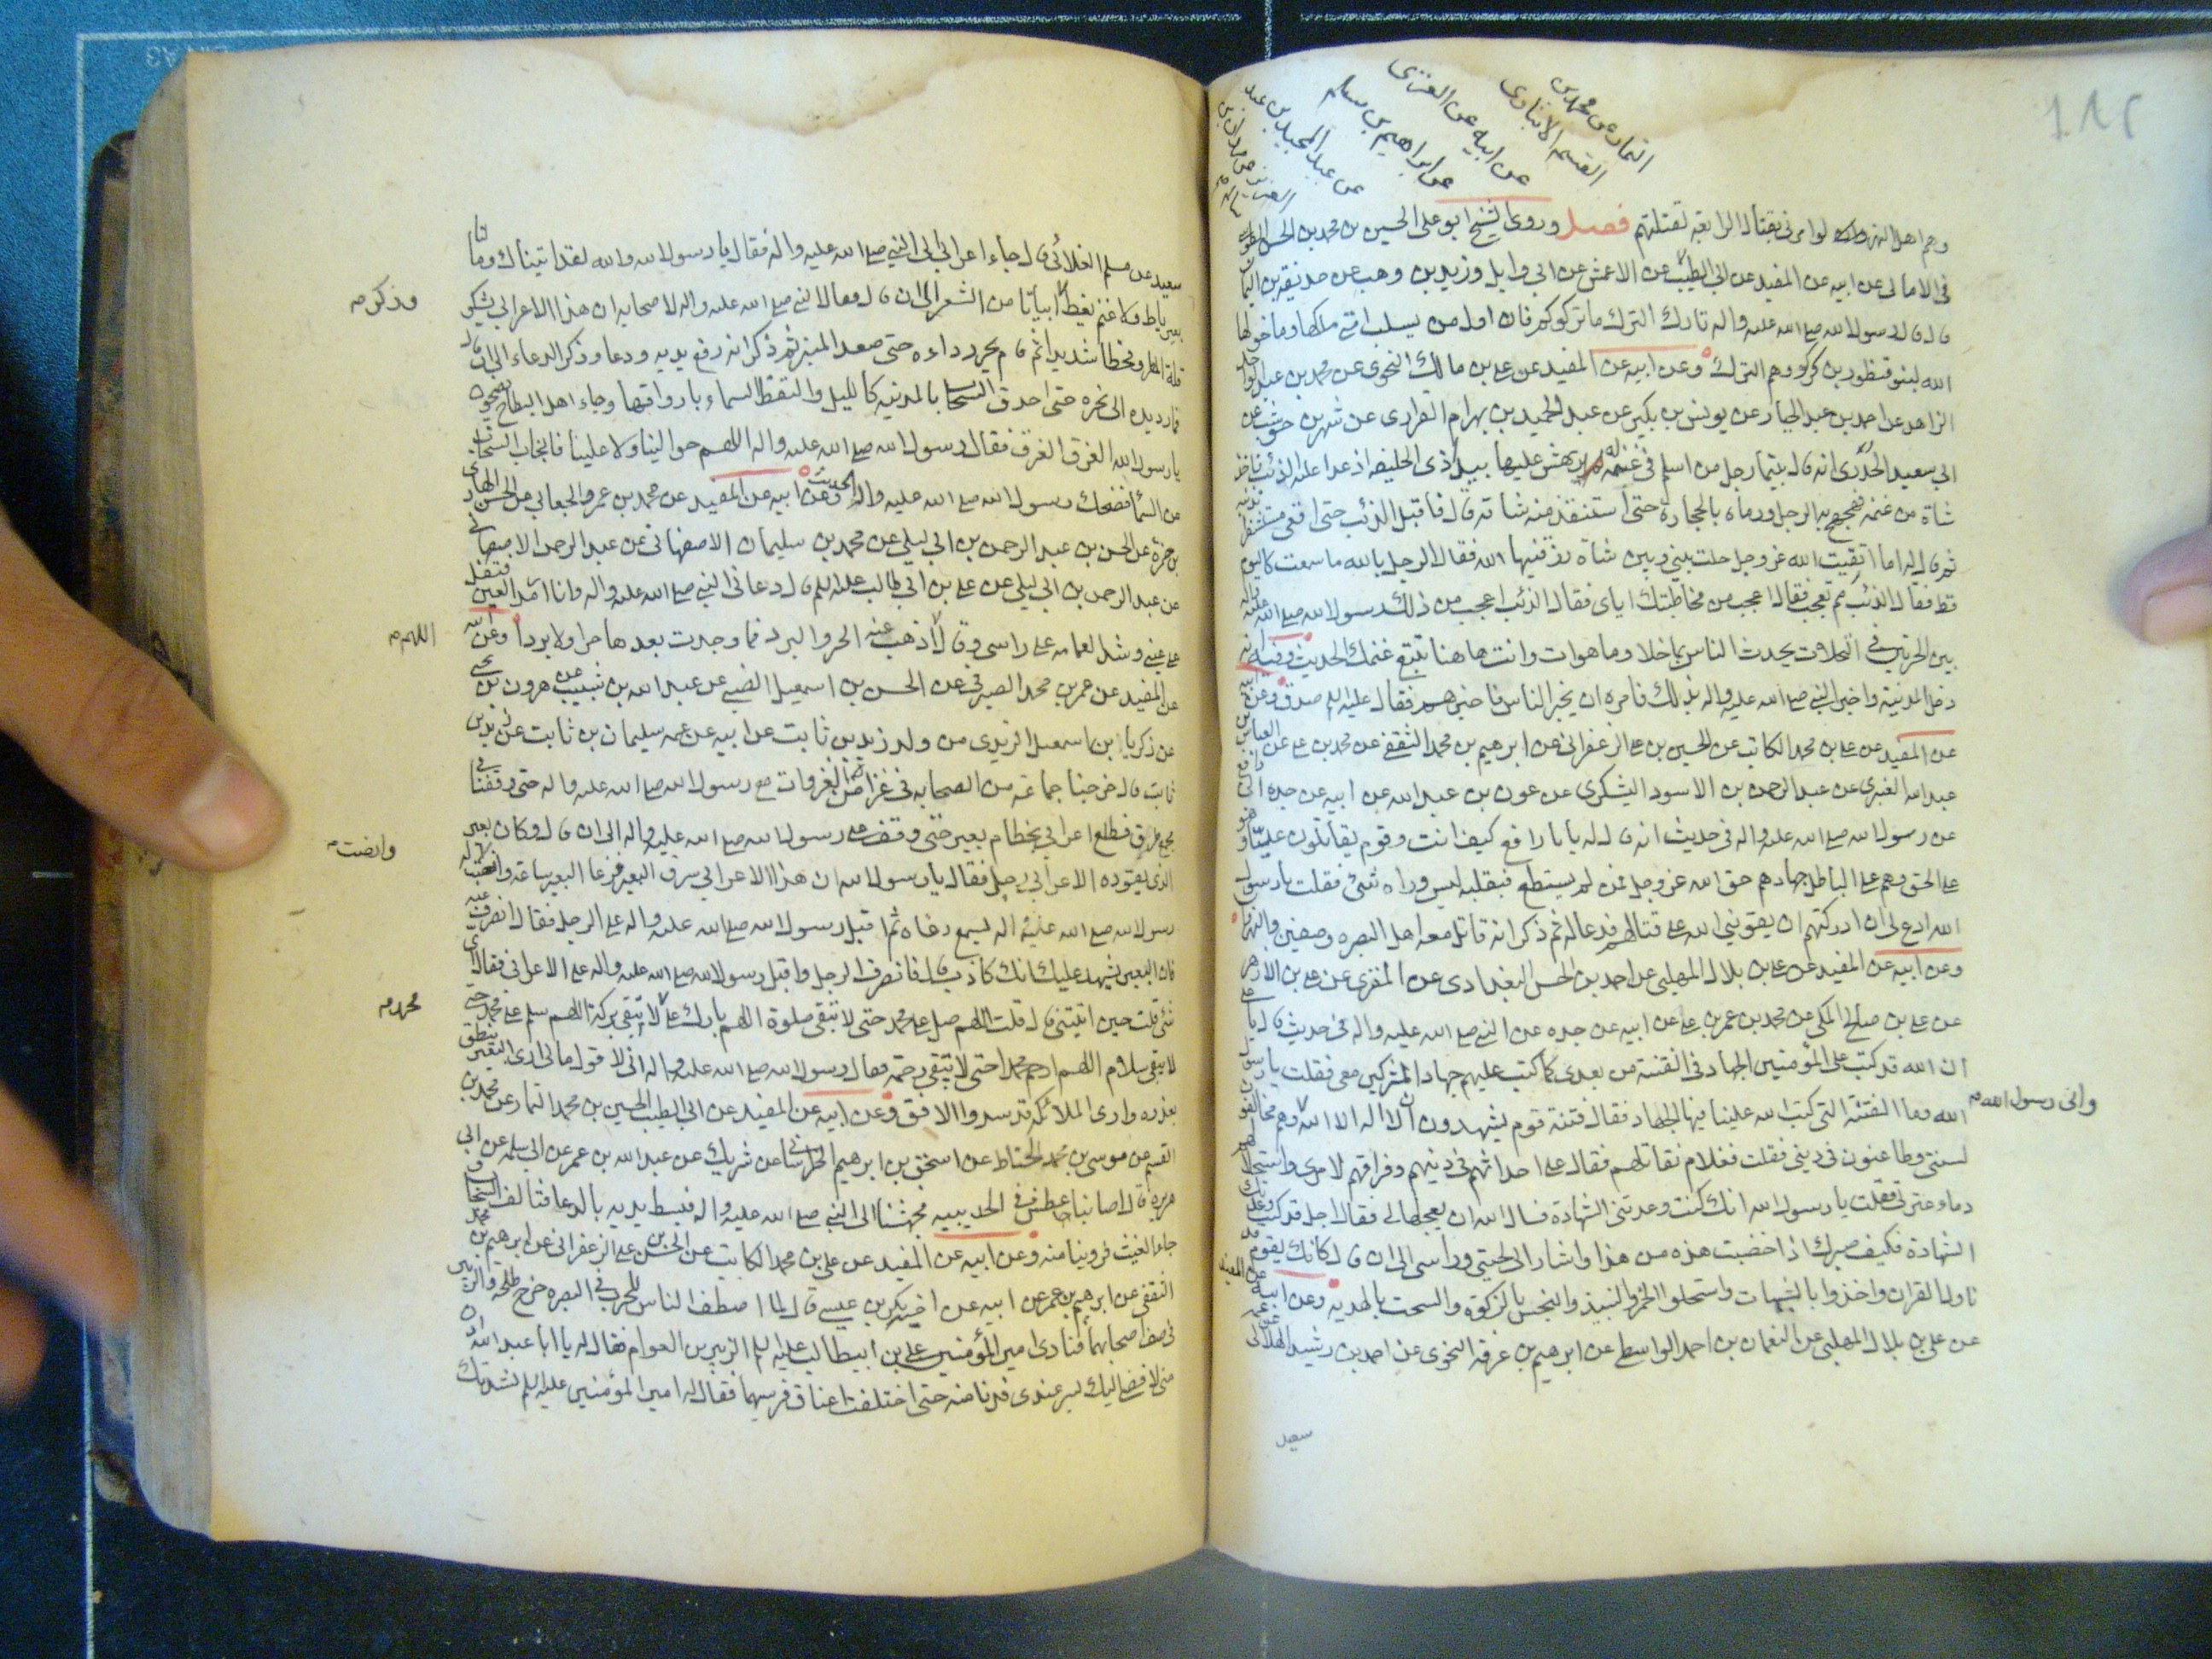 التمار عن محمد بن
القسم الانبارى
عن ابيه عن العنزى
عن ابراهيم بن مسلم
عن عبد المجيد بن عبد
وهم اهل النهروان لو امرنى بقتال الرابعة لقتلتهم فصل وروى الشيخ ابو على الحسين بن محمد بن الحسن الطوسى
فى الامالى عن ابيه عن المفيد عن ابى الطيب عن الاعمش عن ابى وايل وزيد بن وهب عن حذيفة بن اليمان
قال قال رسول الله صلى الله عليه واله تارك الترك ما تركوكم فان اول من يسلب امتى ملكها وما خولها
الله لبنو قنطور بن كركر وهم الترك وعن ابيه عن المفيد عن على بن مالك النحوى عن محمد بن عبد الواحد
الزاهد عن احمد بن عبد الجبار عن يونس بن بكير عن عبد الحميد بن بهرام الفزارى عن شهر بن حوشب عن
ابى سعيد الخدرى انه قال بينما رجل من اسلم فى غنيمة له يهش عليها ببيداء ذى الحليفه اذ عدا عليه الذئب فاخذ
شاة من غنمه فجهجه به الرجل ورماه بالحجارة حتى استنقذ منه شاته قال فاقبل الذئب حتى اقعى مستثفرا بذنبه
ثم قال له اما اتقيت الله عز وجل حلت بينى وبين شاة رزقنيها الله فقال الرجل يا لله ما سمعت كاليوم
قط فقال الذئب مم تعجب فقال اعجب من مخاطبتك اياى فقال الذئب اعجب من ذلك رسول الله صلى الله عليه واله
بين الحرتين فى النخلات يحدث الناس بما خلا وما هو ات وانت هاهنا تتبع غنمك الحديث وفيه انه
دخل المدينة واخبر النبى صلى الله عليه واله بذلك فامره ان يخبر الناس فاخبرهم فقال عليه السلم صدق وعن ابيه
عن المفيد عن على بن محمد الكاتب عن الحسين بن على الزعفرانى عن ابرهيم بن محمد الثقفى عن محمد بن على عن العباس بن
عبد الله العنبرى عن عبد الرحمن بن الاسود اليشكرى عن عون بن عبد الله عن ابيه عن جده ابى رافع
عن رسول الله صلى الله عليه واله فى حديث انه قال له يا با رافع كيف انت وقوم يقاتلون عليا وهو
على الحق وهم على الباطل جهادهم حق الله عز وجل فمن لم يستطع فبقلبه ليس وراه شئ فقلت يا رسول
الله ادع لى ان ادركتهم ان يقوينى الله على قتالهم فدعا له ثم ذكر انه قاتل معه اهل البصره وصفين والنهروان
وعن ابيه عن المفيد عن على بن بلال المهلبى عن احمد بن الحسن البغدادى عن المقرى عن على بن الازهر
عن على بن صالح المكى عن محمد بن عمر بن على عن ابيه عن جده عن النبى صلى الله عليه واله فى حديث قال يا على
ان الله قد كتب على المؤمنين الجهاد فى الفتنة من بعدى كما كتب عليهم جهاد المشركين معى فقلت يا رسول
الله وما الفتنة التى كتب الله علينا فيها الجهاد فقال فتنة قوم يشهدون ان لا اله الا الله وهم مخالفون
وانى رسول الله
لسنتى وطاعنون فى دينى فقلت فعلام نقاتلهم فقال على احداثهم فى دينهم وفراقهم لامرى واستحلالهم
دماء عترتى فقلت يا رسول الله انك كنت وعدتنى الشهادة فسال الله ان يعجلها لى فقال اجل قد كنت وعدتك
الشهادة فكيف صبرك اذا خضبت هذه من هذا واشار الى لحيتى وراسى الى ان قال كانك بقوم قد
تاولوا القران واخذوا بالشبهات واستحلوا الخمر والنبيذ والبخس بالزكوة والسحت بالهديه وعن ابيه عن المفيد
عن على بن بلال المهلبى عن النعمان بن احمد الواسطى عن ابرهيم بن عرفة النحوى عن احمد بن رشيد الهلالى عن عمه
سعيد
سعيد عن مسلم الغلائى قال جاء اعرابى الى النبى صلى الله عليه واله فقال يا رسول الله والله لقد اتيناك وما لنا
بعير ياط ولا غنم يغط ابياتا من الشعر الى ان قال فقال النبى صلى الله عليه واله لاصحابه ان هذا الاعرابى يشكو
وذكر
قلة المطر وقحطا شديدا ثم قام يجر رداءه حتى صعد المنبر ثم ذكر انه رفع يديه ودعا وذكر الدعاء الى ان قال
فما رد يده الى نحره حتى احدق السحاب بالمدينه كالليل والتقط السماء بارواقها وجاء اهل البطاح يضجون
يا رسول الله الغرق الغرق فقال رسول الله صلى الله عليه واله اللهم حوالينا ولا علينا فانجاب السحاب
عن السما فضحك رسول الله صلى الله عليه واله الحديث وعن ابيه عن المفيد عن محمد بن عمر الجعابى عن الحسن الهادى
بن حمزة عن الحسن بن عبد الرحمن بن ابى ليلى عن محمد بن سليمان الاصفهانى عن عبد الرحمن الاصفهانى
عن عبد الرحمن بن ابى ليلى عن على بن ابى طالب عليه السلم قال دعانى النبى صلى الله عليه واله وانا ارمد العين فتفل
فى عينى وشد العمامه على راسى وقال اذهب عنه الحر والبرد فما وجدت بعدها حرا ولا بردا وعن ابيه
اللهم
عن المفيد عن عمر بن محمد الصيرفى عن الحسن بن اسمعيل الضبى عن عبد الله بن شبيب عن هرون بن يحيى
عن زكريا بن اسمعيل الزيدى من ولد زيد بن ثابت عن ابيه عن عمه سليمان بن ثابت عن زيد بن
ثابت قال خرجنا جماعة من الصحابه فى غزاة من الغزوات مع رسول الله صلى الله عليه واله حتى وقفنا فى
مجمع طرق فطلع اعرابى بخطام بعير حتى وقف على رسول الله صلى الله عليه واله الى ان قال وكان بعير
الذى يقوده الاعرابى رجل فقال يا رسول الله ان هذا الاعرابى سرق البعير فرغا البعير ساعة وانصت له
وانصت
رسول الله صلى الله عليه واله ليسمع رغاه ثم اقبل رسول الله صلى الله عليه واله على الرجل فقال انصرف عنه
فان البعير يشهد عليك انك كاذب قال فانصرف الرجل واقبل رسول الله صلى الله عليه واله على الاعرابى فقال اى
شئ قلت حين اتيتنى قال قلت اللهم صل على محمد حتى لا تبقى صلوة اللهم بارك على حتى لا تبقى بركة اللهم سلم على محمد حتى
محمد
لا يبقى سلام اللهم ارحم محمدا حتى لا تبقى رحمة فقال رسول الله صلى الله عليه واله انى لاقول ما لى ارى البعير ينطق
بعذره وارى الملائكة قد سدوا الافق وعن ابيه عن المفيد عن ابى الطيب الحسين بن محمد التمار عن محمد بن
القسم عن موسى بن محمد الحناط عن اسحق بن ابرهيم الخراسانى عن شريك عن عبد الله بن عمر عن ابى سلمه عن ابى
هريره قال اصابنا عطش فى الحديبيه فجهشنا الى النبى صلى الله عليه واله فبسط يديه بالدعا فتالف السحاب و
جاء الغيث فروينا منه وعن ابيه عن المفيد عن على بن محمد الكاتب عن الحسن بن على الزعفرانى عن ابرهيم بن محمد
الثقفى عن ابرهيم بن عمر عن ابيه عن اخيه بكر بن عيسى قال لما اصطف الناس للحرب فى البصره خرج طلحه والزبير
فى صف اصحابهما فنادى امير المؤمنين على بن ابيطالب عليه السلم الزبير بن العوام فقال له يا ابا عبد الله ادن
منى لافضى اليك بسر عندى فدنا منه حتى اختلفت اعناق فرسيهما فقال له امير المؤمنين عليه السلم نشدتك